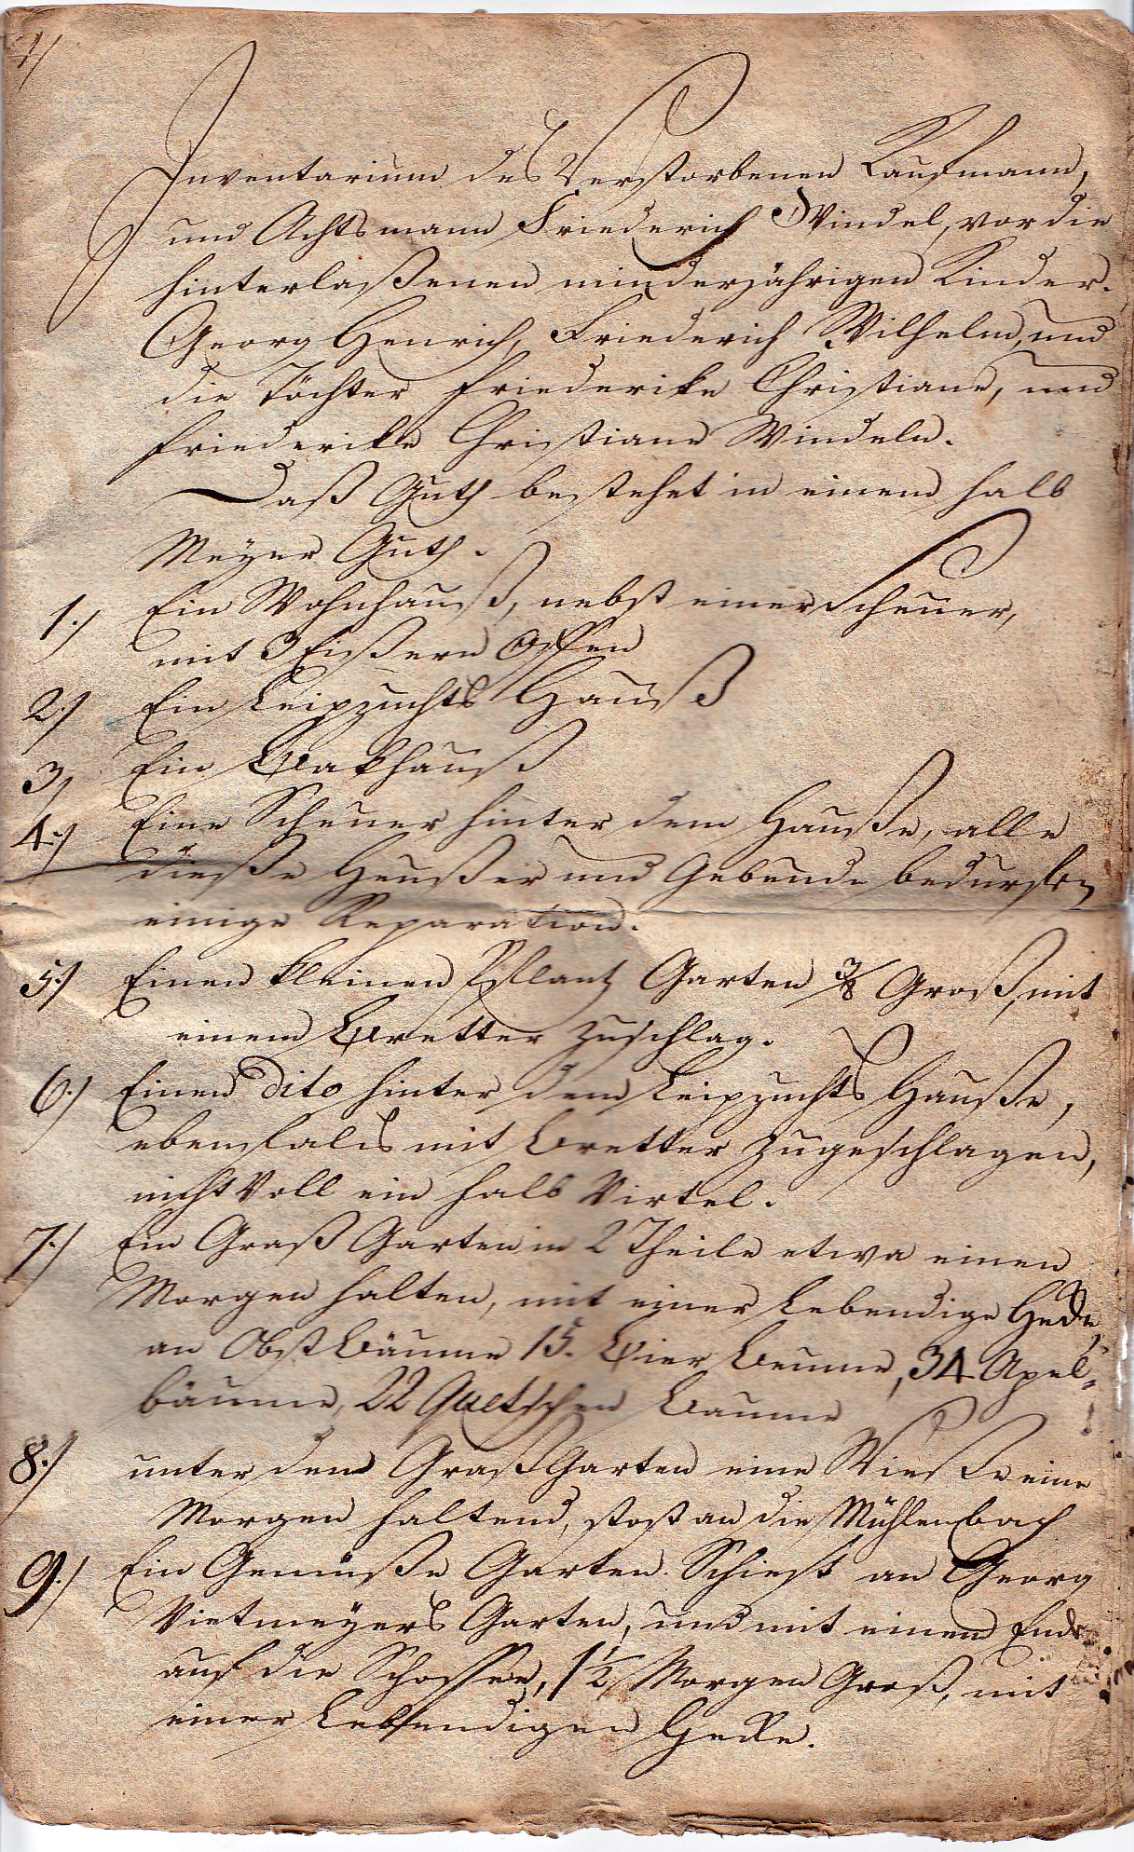 1/
Inventarium des Verstorbenen Kaufmann,
und Achtsmann Friederich Windel, vor die
hinterlaßenen minderjährigen Kinder.
Georg Henrich, Friederich Wilhelm, und
die Töchter Friederike Christiane, und
Friederike Christiane Windeln.
Daß Guth bestehet in einem halb
Meyer Guth.
1.) Ein Wohnhauß, nebst einer Scheuer,
mit 3 Eißern Offen
2.) Ein Leipzuchts Hauß
3) Ein Bakhauß
4.) Eine Scheuer hinter dem Hauße, alle
dieße Heußer und Gebeude bedurfen
einige Reparation.
5.) Einen kleinen Pflantz Garten Groß, mit
einem Bretter Zuschlag.
6.) Einen dito hinter dem Leipzuchts Hauße,
ebenfals mit Bretter zugeschlagen,
nicht Voll ein halb Virtel.
7.) Ein Graß Garten in 2 Theile etwa einen
Morgen halten, mit einer Lebendige Hecke,
an Obst Bäume 15. Bier Beume, 34 Apel-
bäume, 22 Quetschen Baume
8.) unter dem Graß Garten eine Wieße eine
Morgen haltend, stost an die Mühlenbach
9.) Ein Gemüße Garten. Schiest an Georg
Vietmeyers Garten, und mit einem Ende
auf die Schossee, 1 1/2 Morgen Groß, mit
einer Lebendigen Hecke.